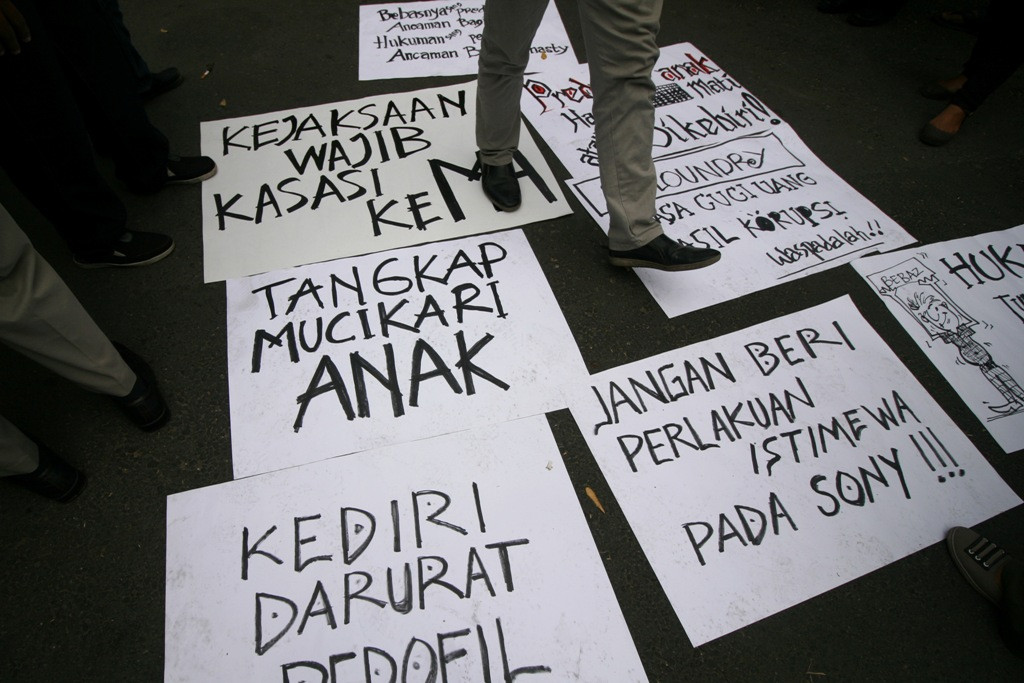 Bebasnya
Ancaman
Hukuman
Ancaman
KEJAKSAAN
WAJIB
KASASI
KE MA
anak
Mati
Dikebiri!!
LOUNDRY
GUCI UANG
KORUPSI
Waspadalah!!
TANGKAP
MUCIKARI
ANAK
BEBAZ
JANGAN BERI
PERLAKUAN
ISTIMEWA
PADA SONY !!!
KEDIRI
DARURAT
PEDOFIL